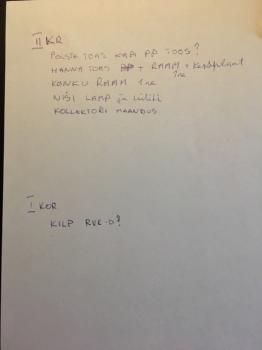 II KR
POISTE TOAS KAPI PP TÖÖS?
HANNA TOAS PP + RAAM + keskplaat
1ne
KONKU RAAM 1ne
NIŠI LAMP ja lüliti
KOLLEKTORI MAANDUS
I KOR
KILP RVK-D?